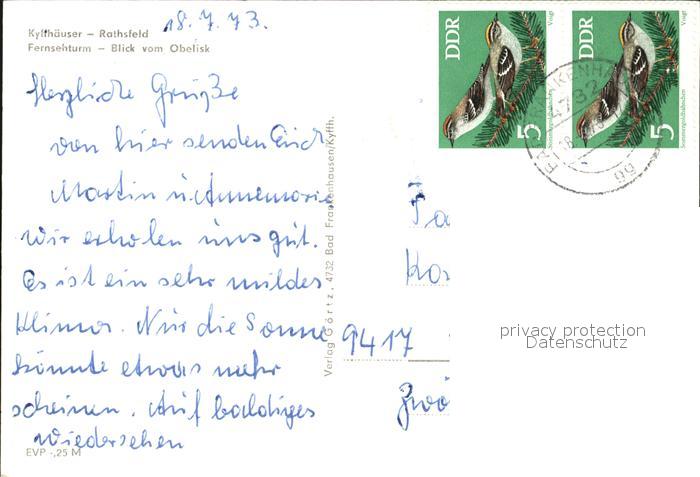 18.7.73.
Kyffhäuser – Rathsfeld
Fernsehturm – Blick vom Obelisk
Herzliche Grüße
von hier senden Euch
Martin u. Annemarie
Wir erholen uns gut.
Es ist ein sehr mildes
Klima. Nur die Sonne
könnte etwas mehr
scheinen. Auf baldiges
Wiedersehen
EVP -,25 M
Verlag Görtz, 4732 Bad Frankenhausen/Kyffh.
DDR
5
Sommergoldhähnchen
Voigt
DDR
5
Sommergoldhähnchen
Voigt
4732
9417
privacy protection
Datenschutz